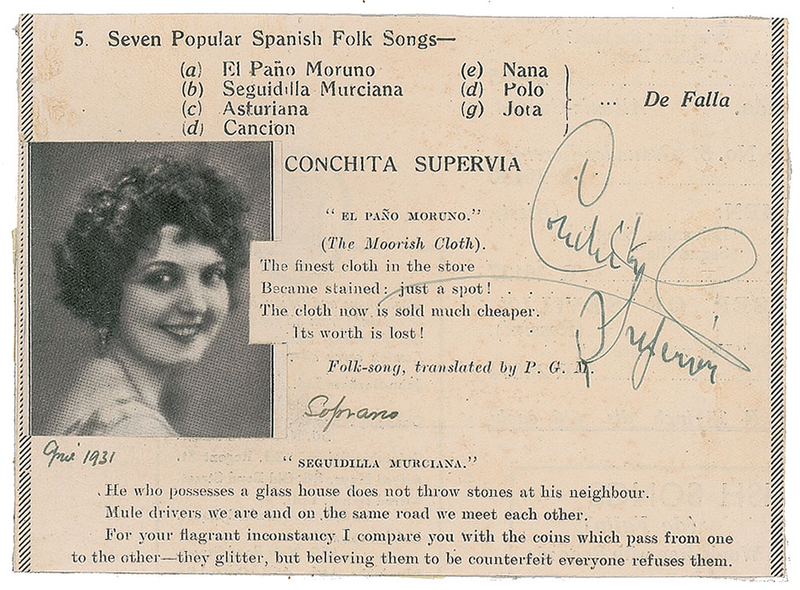 5. Seven Popular Spanish Folk Songs—
(a) El Paño Moruno
(b) Seguidilla Murciana
(c) Asturiana
(d) Cancion
(e) Nana
(d) Polo
(g) Jota
... De Falla
CONCHITA SUPERVIA
Conchita
Supervia
“ EL PAÑO MORUNO.”
(The Moorish Cloth).
The finest cloth in the store
Became stained: just a spot! . .
The cloth now is sold much cheaper.
Its worth is lost!
Folk-song, translated by P. G. M.
Soprano
1931
“ SEGUIDILLA MURCIANA.”
He who possesses a glass house does not throw stones at his neighbour.
Mule drivers we are and on the same road we meet each other.
For your flagrant inconstancy I compare you with the coins which pass from one
to the other—they glitter, but believing them to be counterfeit everyone refuses them.